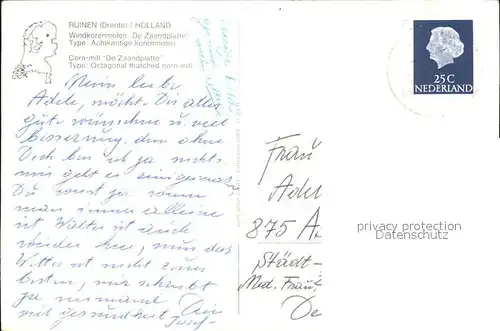 RUINEN (Drente) / HOLLAND
Windkorenmolen „De Zaandplatte"
Type: Achtkantige korenmolen
Corn-mill "De Zaandplatte"
Type: Octagonal thatched corn-mill
Meine liebe
Adele, möchte Dir alles
gute wünschen u. viel
besserung, den ohne
Dich bin ich ja nichts
mir geht es einigermaß
Du weist ja wenn
man immer alleine
ist Walter ist auch
wieder hier, nur das
Wetter ist nicht zum
besten, mir schreibt
ja niemand Dein
viel gesundheit Josef
25 C
NEDERLAND
Frau
Adel
875 A
Städt-
Med. Frau
De
privacy protection
Datenschutz